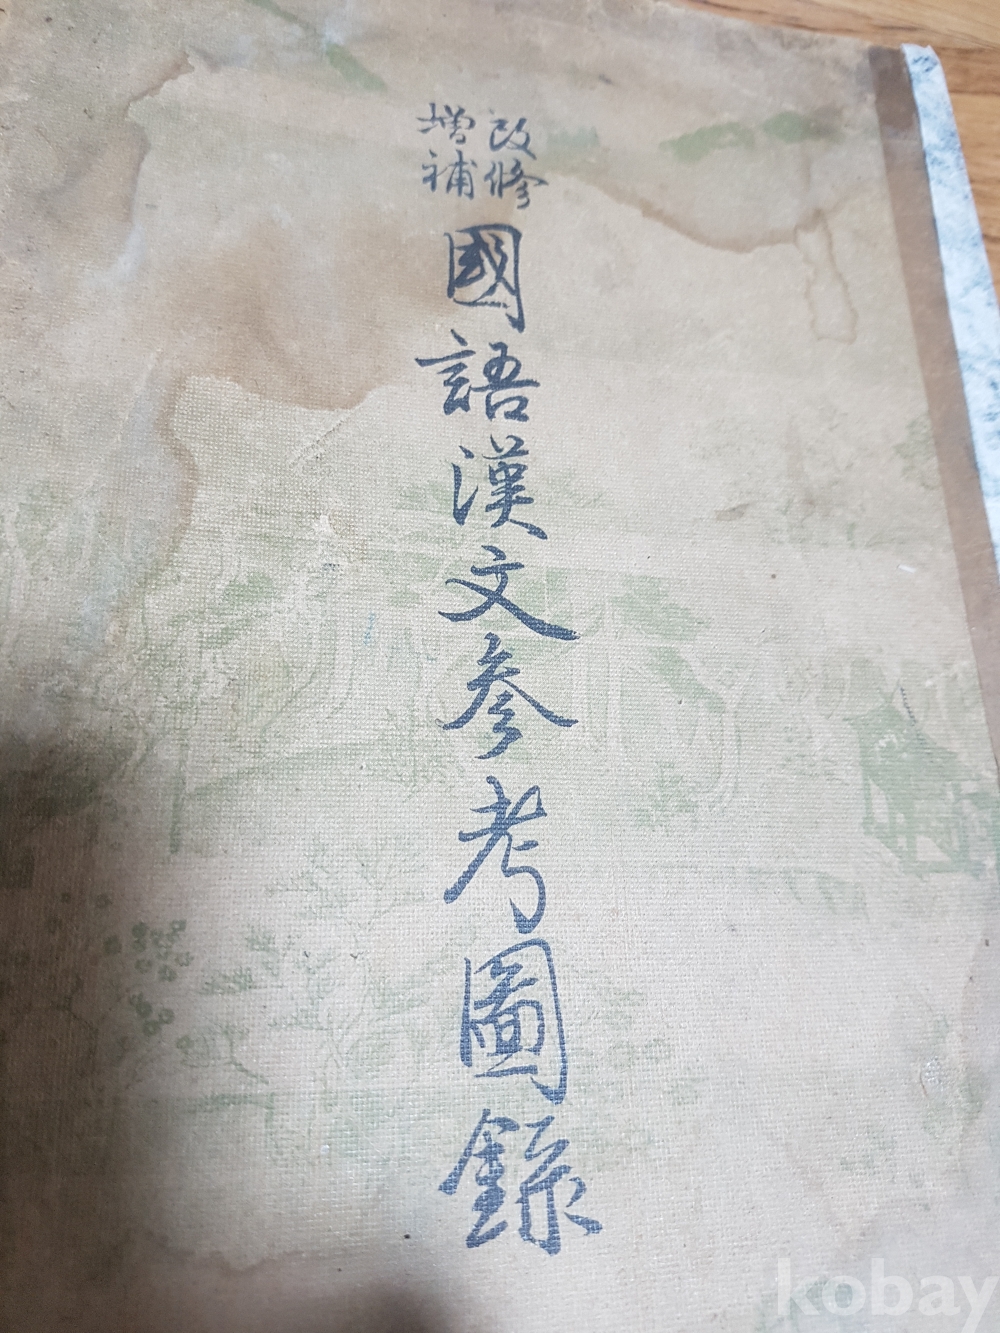 改修
增補
國語漢文参考圖錄
kobay